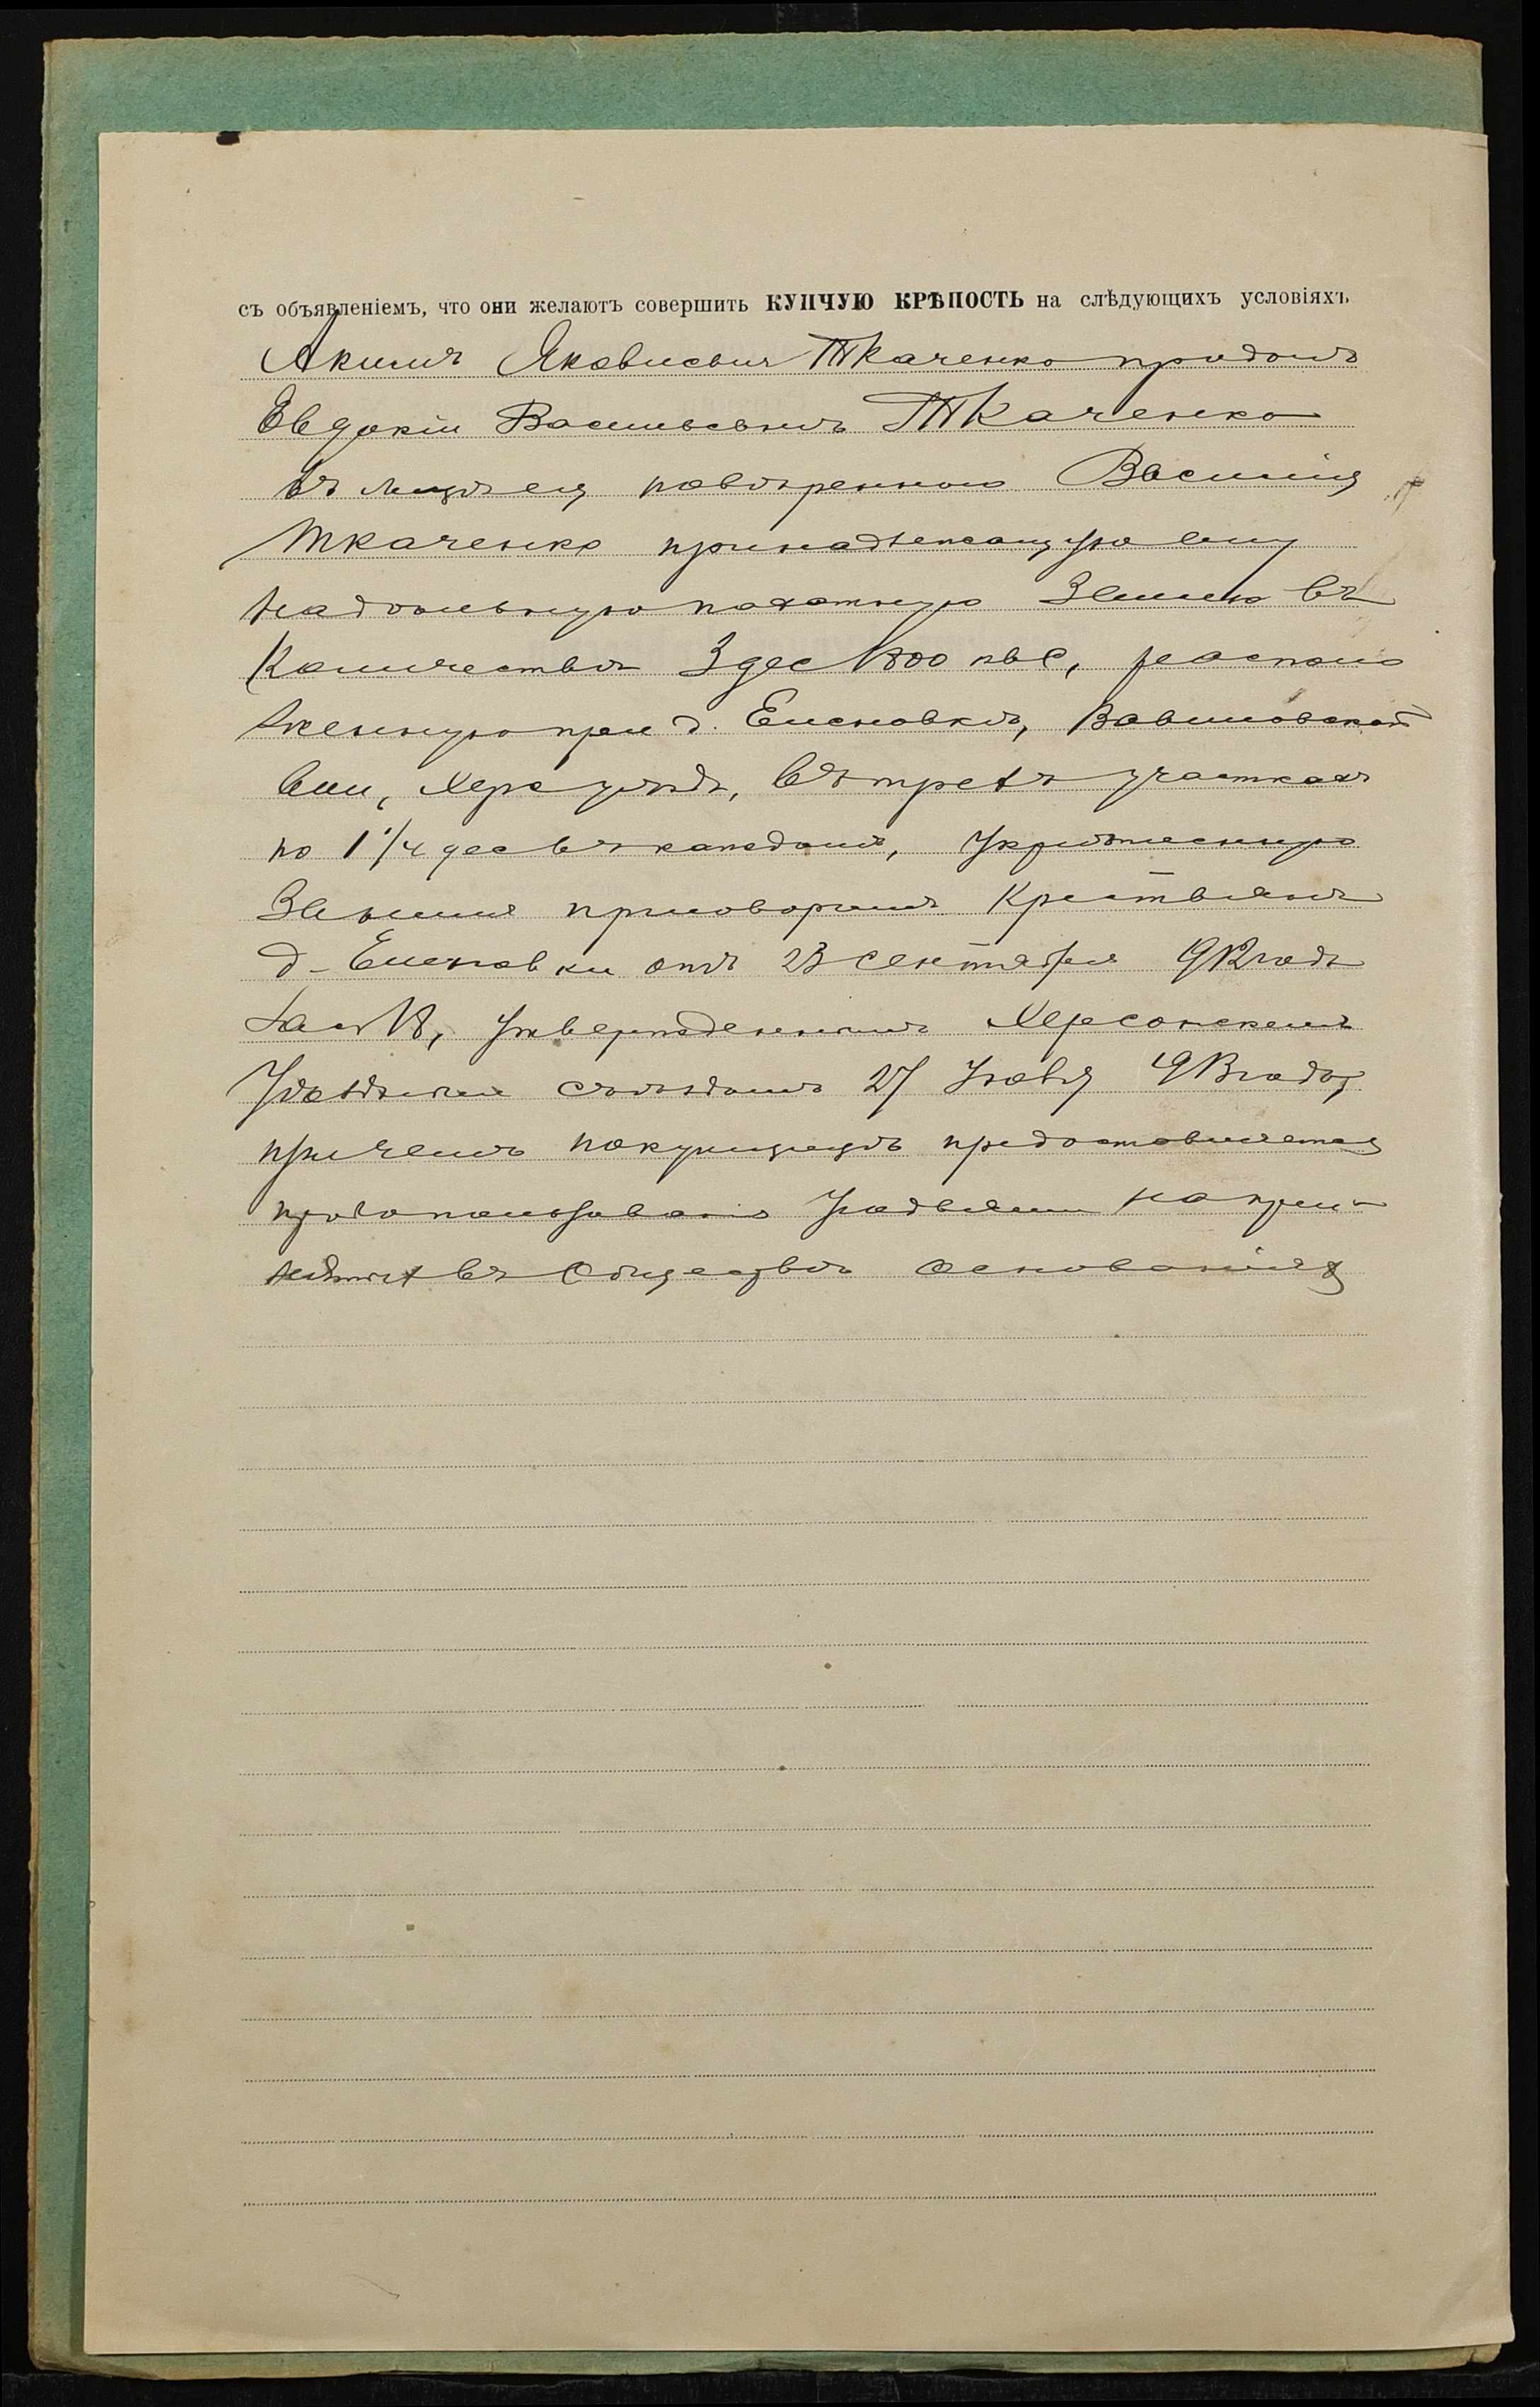 съ объявленіемъ, что они желаютъ совершить КУПЧУЮ КРѢПОСТЬ на слѣдующихъ условіяхъ
Акимъ Яковлевичъ Ткаченко продалъ
Евдокіи Васильевнѣ Ткаченко
въ лицѣ ея повѣреннаго Василія
Ткаченко принадлежащую ему
надѣльную пахатную землю въ
количествѣ 3 дес 1800 кв с, располо
женную при д. Еленовкѣ, Вавиловской
вол, Херс уѣзда, въ трехъ участкахъ
по 1 1/4 дес въ каждомъ, укрѣпленную
За нимъ приговоромъ крестьянъ
д. Еленовки отъ 23 сентября 912 года
за № 18, утвержденнымъ Херсонскимъ
Уѣзднымъ съѣздомъ 27 913 года,
причемъ покупщицѣ предоставляется
право пользованія угодьями на прив
нятыхъ въ обществѣ основаніяхъ